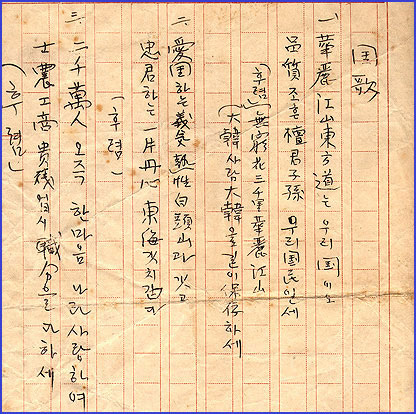 国歌
一. 華麗江山東方道는 우리国이오
品質조흔 檀君子孫 우리国民일세
(후렴) 無窮花三千里華麗江山
大韓사람 大韓을길이保存하세
二. 愛国하는義気熱性白頭山과갓고
忠君하는一片丹心 東海갓치깁다
(후렴)
三. 二千萬人 오즉 한마음 나라사랑하여
士農工商貴賎업시 職分으로다하세
(후렴)